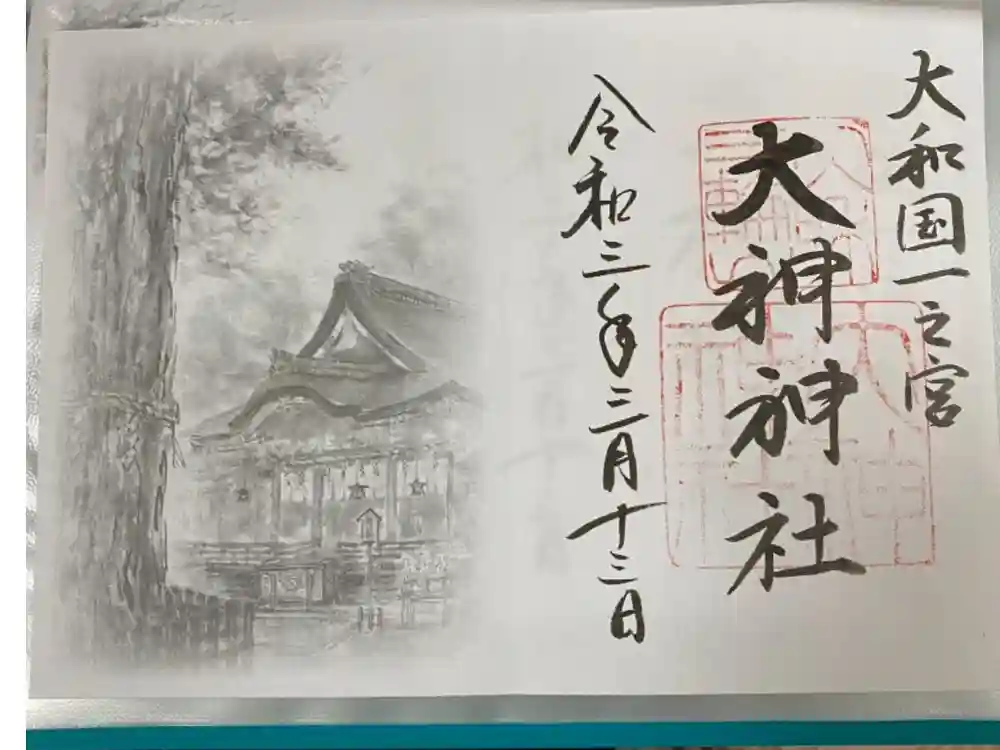 大和国一之宮
大神神社
令和三年三月十三日